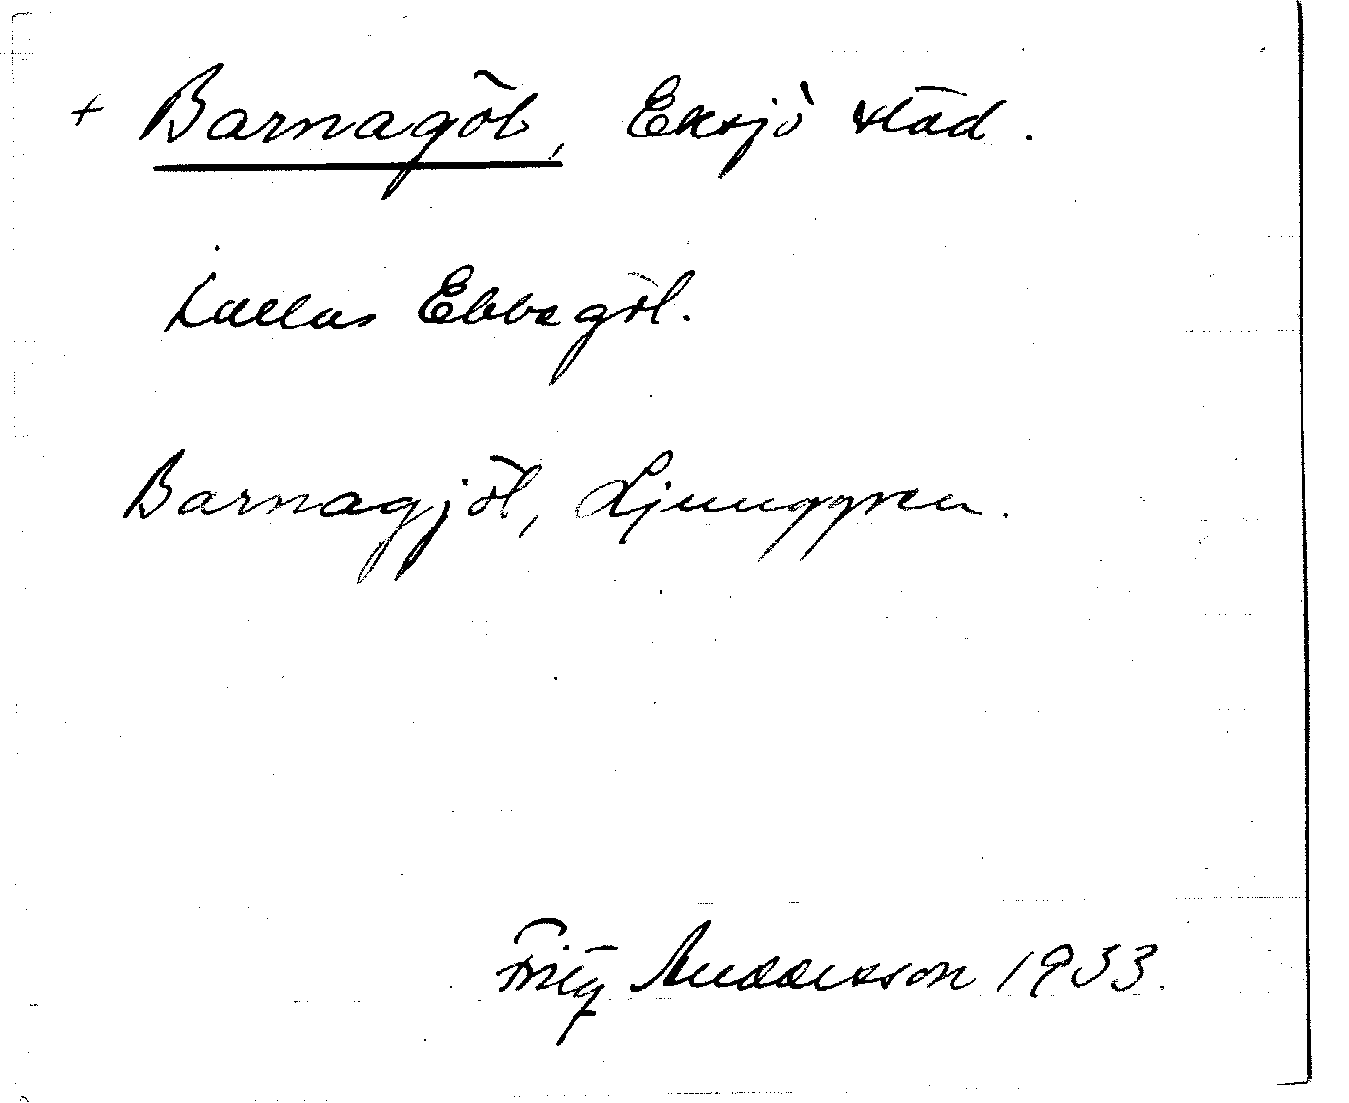 + Barnagöl, Eksjö stad.
Kallas Ebbagöl.
Barnagjöl, Ljunggren.
Fritz Andersson 1933.